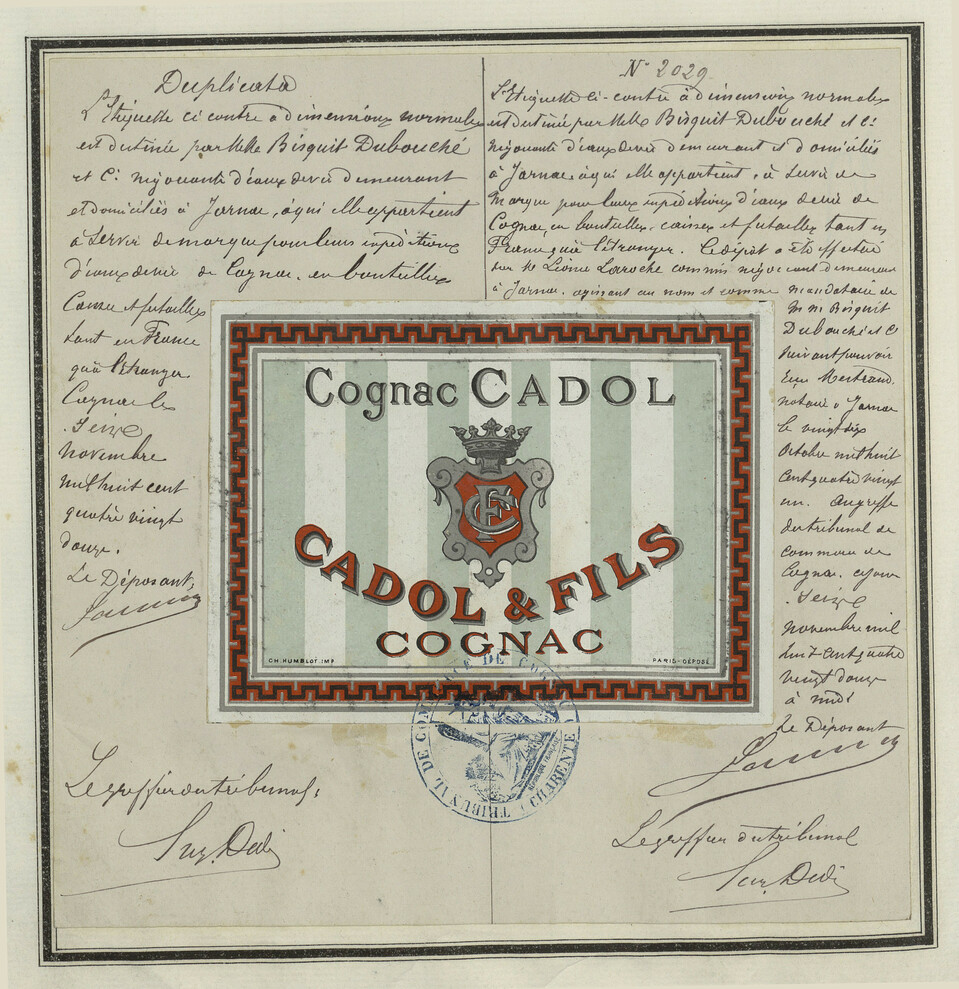 Duplicata
L'Etiquette ci contre à dimensions normales
est destinée par Melle Bisquit Dubouché
et Cie négociants d'eaux de vie demeurant
et domiciliés à Jarnac, à qui elle appartient
à servir de marque pour leurs expéditions
d'eaux de vie de Cognac en bouteilles
Caisses et futailles
tant en France
qu'à l'étranger
Cognac le
Seize
Novembre
mil huit cent
quatre vingt
douze.
Le Déposant,
Le greffier du tribunal,
N° 2029
L'Etiquette ci-contre à dimensions normales
est destinée par Melle Bisquit Dubouché et Cie
négociants d'eaux de vie demeurant et domiciliés
à Jarnac, à qui elle appartient, à servir de
Marque pour leurs expéditions d'eaux de vie de
Cognac en bouteilles, caisses et futailles tant en
France qu'à l'étranger. Le dépôt a été effectué
par M Léonce Laroche commis négociant demeurant
à Jarnac, agissant au nom et comme mandataire de
M.M. Bisquit
Dubouché et Cie
suivant pouvoir
notaire à Jarnac
le vingt six
Octobre mil huit
cent quatre vingt
un. Au greffe
du tribunal de
commerce de
Cognac, ce jour
Seize
Novembre mil
huit cent quatre
vingt douze
à midi
Le Déposant
Le greffier du tribunal
Cognac CADOL
CADOL & FILS
COGNAC
CH. HUMBLOT. IMP
PARIS-DÉPOSÉ
TRIBUNAL DE COMMERCE DE COGNAC
CHARENTE